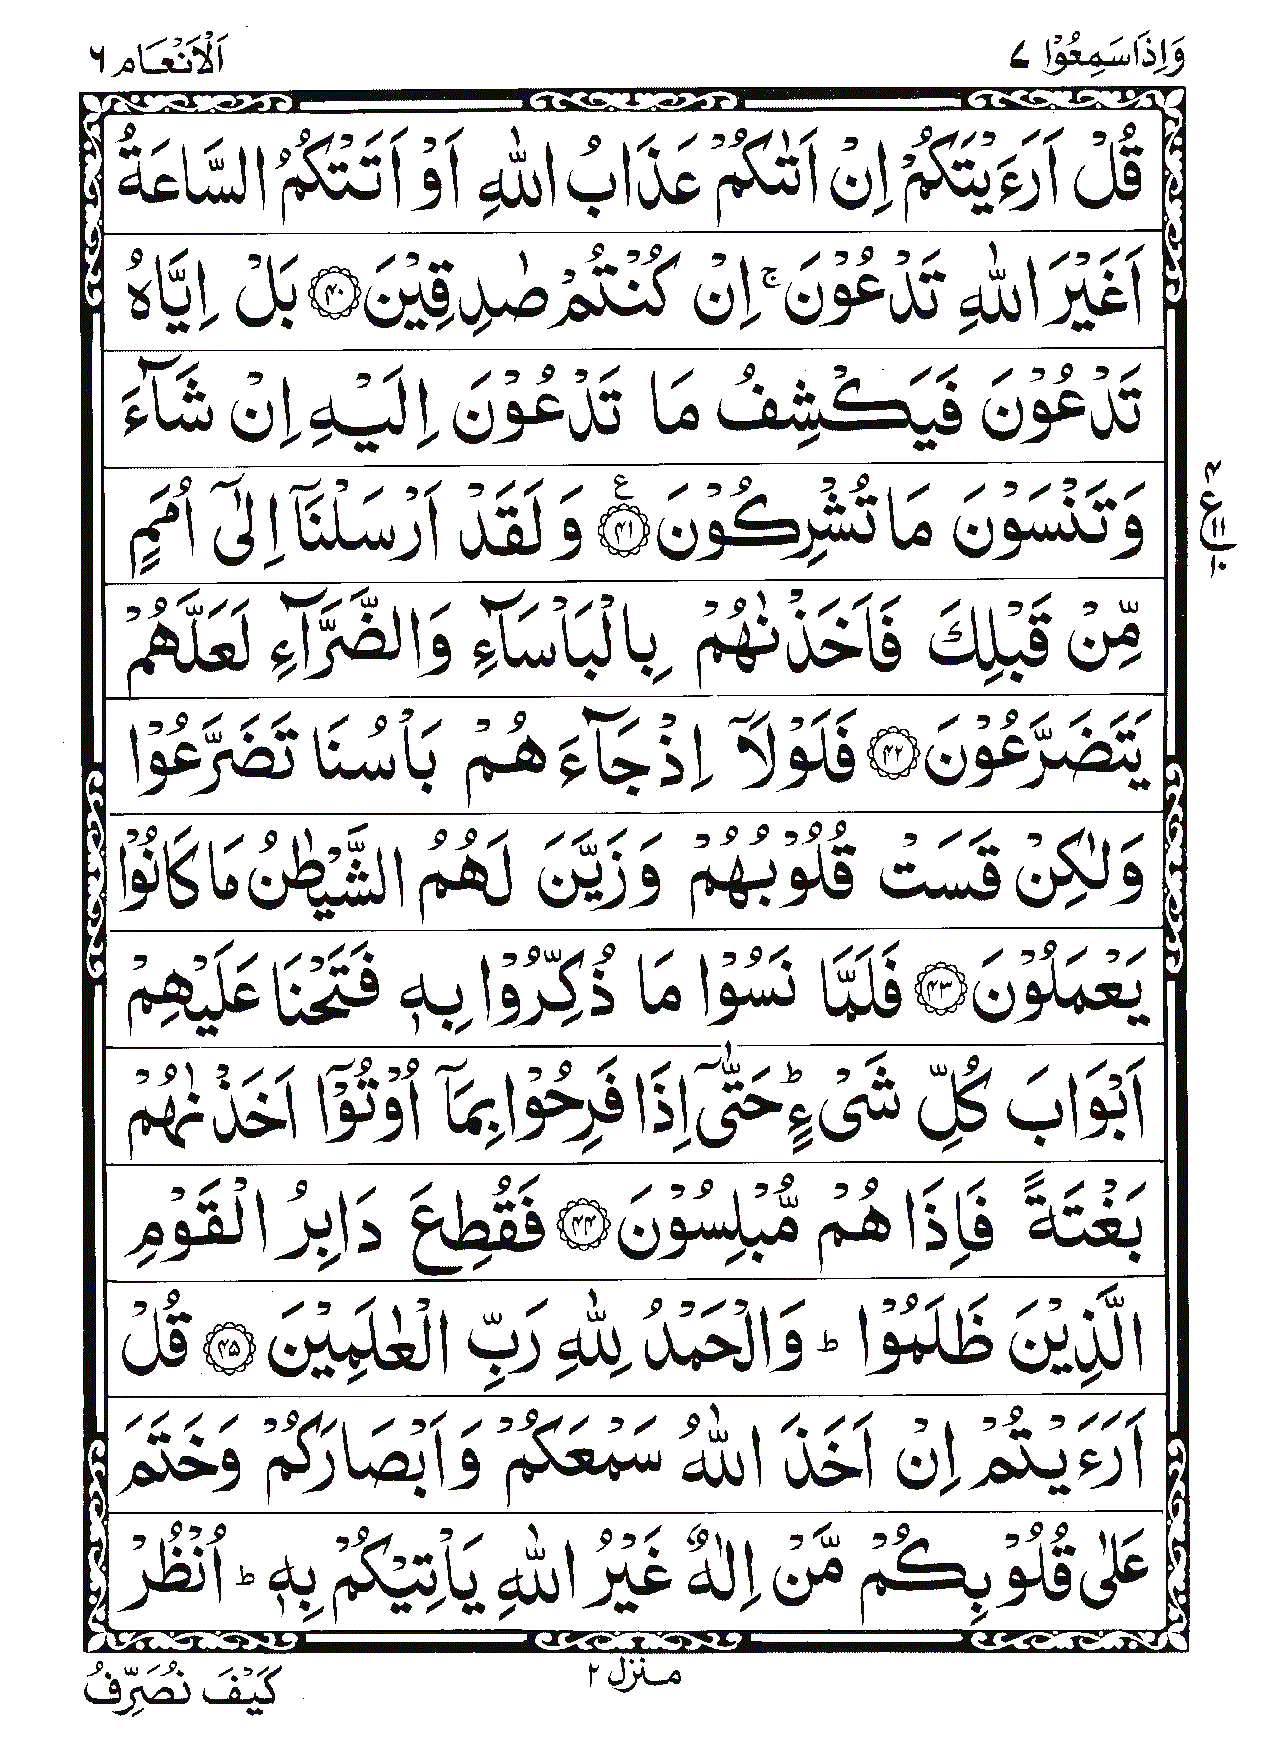 وَاِذَاسَمِعُوْا ٧
اَلْاَنْعَام ٦
قُلْ اَرَءَيْتَكُمْ اِنْ اَتٰىكُمْ عَذَابُ اللّٰهِ اَوْ اَتَتْكُمُ السَّاعَةُ
اَغَيْرَ اللّٰهِ تَدْعُوْنَ ۚ اِنْ كُنْتُمْ صٰدِقِيْنَ ﴿۴۰﴾ بَلْ اِيَّاهُ
تَدْعُوْنَ فَيَكْشِفُ مَا تَدْعُوْنَ اِلَيْهِ اِنْ شَآءَ
وَتَنْسَوْنَ مَا تُشْرِكُوْنَ ﴿۴۱﴾ ع وَلَقَدْ اَرْسَلْنَآ اِلٰٓى اُمَمٍ
۴ ع ۱۱ ۱۰
مِّنْ قَبْلِكَ فَاَخَذْنٰهُمْ بِالْبَاْسَآءِ وَالضَّرَّآءِ لَعَلَّهُمْ
يَتَضَرَّعُوْنَ ﴿۴۲﴾ فَلَوْلَآ اِذْ جَآءَهُمْ بَاْسُنَا تَضَرَّعُوْا
وَلٰكِنْ قَسَتْ قُلُوْبُهُمْ وَزَيَّنَ لَهُمُ الشَّيْطٰنُ مَا كَانُوْا
يَعْمَلُوْنَ ﴿۴۳﴾ فَلَمَّا نَسُوْا مَا ذُكِّرُوْا بِهٖ فَتَحْنَا عَلَيْهِمْ
اَبْوَابَ كُلِّ شَىْءٍ ؕ حَتّٰٓى اِذَا فَرِحُوْا بِمَآ اُوْتُوْٓا اَخَذْنٰهُمْ
بَغْتَةً فَاِذَا هُمْ مُّبْلِسُوْنَ ﴿۴۴﴾ فَقُطِعَ دَابِرُ الْقَوْمِ
الَّذِيْنَ ظَلَمُوْا ؕ وَالْحَمْدُ لِلّٰهِ رَبِّ الْعٰلَمِيْنَ ﴿۴۵﴾ قُلْ
اَرَءَيْتُمْ اِنْ اَخَذَ اللّٰهُ سَمْعَكُمْ وَاَبْصَارَكُمْ وَخَتَمَ
عَلٰى قُلُوْبِكُمْ مَّنْ اِلٰهٌ غَيْرُ اللّٰهِ يَاْتِيْكُمْ بِهٖ ؕ اُنْظُرْ
منزل ۲
كَيْفَ نُصَرِّفُ